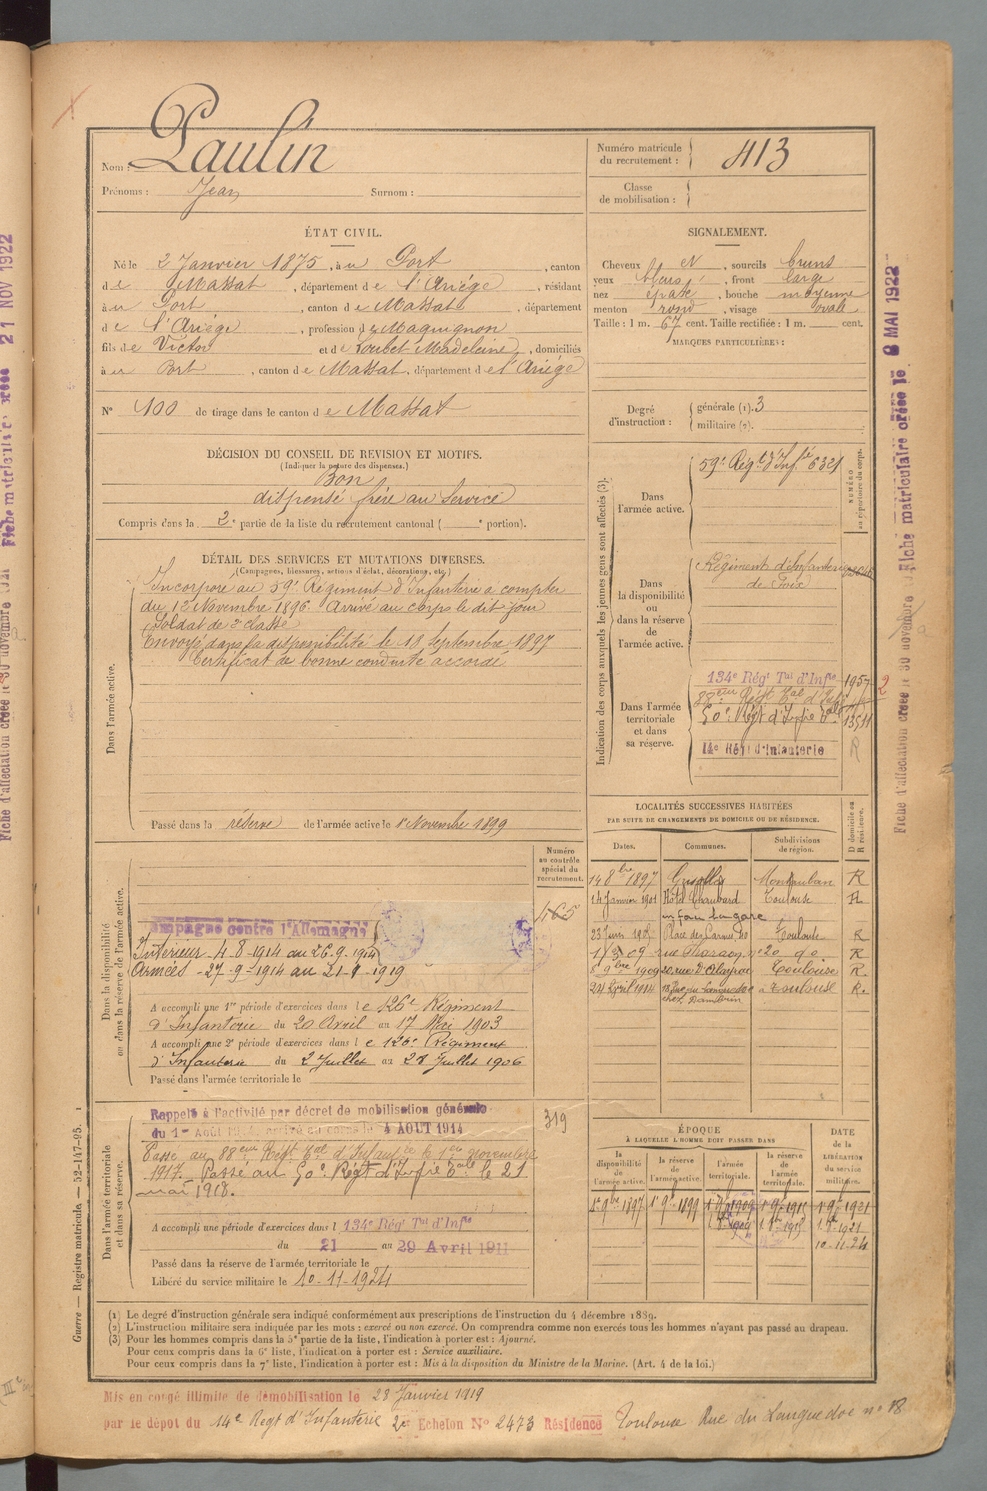 Nom : Paulin
Prénoms : Jean Surnom :
Numéro matricule du recrutement : 413
Classe de mobilisation :
ÉTAT CIVIL.
Né le 2 Janvier 1875, à u Port, canton
d e Massat, département d e l'Ariège, résidant
à u Port, canton d e Massat, département
d e l'Ariège, profession d e Maquignon
fils d e Victor et d e Loubet Madeleine, domiciliés
à u Port, canton d e Massat, département d e l'Ariège
N° 100 de tirage dans le canton d e Massat
SIGNALEMENT.
Cheveux et , sourcils bruns
yeux bleus , front large
nez épaté , bouche moyenne
menton rond , visage ovale
Taille : 1 m. 67 cent. Taille rectifiée : 1 m. cent.
MARQUES PARTICULIÈRES :
Degré d'instruction : générale (1). 3
militaire (2).
DÉCISION DU CONSEIL DE REVISION ET MOTIFS.
(Indiquer la nature des dispenses.)
Bon
dispensé frère au service
Compris dans la 2e partie de la liste du recrutement cantonal ( e portion).
DÉTAIL DES SERVICES ET MUTATIONS DIVERSES.
(Campagnes, blessures, actions d'éclat, décorations, etc.)
Dans l'armée active.
Incorporé au 59e Régiment d'Infanterie à compter
du 12 Novembre 1896. Arrivé au corps le dit jour
Soldat de 2e classe
Envoyé dans la disponibilité le 18 Septembre 1897
Certificat de bonne conduite accordé
Passé dans la réserve de l'armée active le 1er Novembre 1899
Indication des corps auxquels les jeunes gens sont affectés (3).
NUMÉRO au répertoire du corps.
Dans l'armée active.
59e Régt d'Infie 6321
Dans la disponibilité ou dans la réserve de l'armée active.
Régiment d'Infanterie
de Foix
Dans l'armée territoriale et dans sa réserve.
134e Régt Tal d'Infie 1957
88eme Régt Tal d'Infie
50e Régt d'Infie Tale 13511
14e Régt d'Infanterie R
LOCALITÉS SUCCESSIVES HABITÉES
PAR SUITE DE CHANGEMENTS DE DOMICILE OU DE RÉSIDENCE.
Dates. Communes. Subdivisions de région. D domicile ou R résidence.
14 8bre 1897 Montauban R
14 Janvier 1901 Hôtel Chaubard Toulouse R
en face la gare
23 Juin Place des Carmes 10 Toulouse R
1/3 09 rue Pharaon, n° 20 do R
8 9bre 1909 Toulouse R.
24 Avril 1914 à Toulouse R.
Dans la disponibilité ou dans la réserve de l'armée active.
Numéro au contrôle spécial du recrutement.
165
Campagne contre l'Allemagne
Intérieur - 4-8-1914 au 26.9.1914
Armées - 27-9-1914 au 21-1-1919
A accompli une 1re période d'exercices dans l e 126e Régiment
d'Infanterie du 20 Avril au 17 Mai 1903
A accompli une 2e période d'exercices dans l e 126e Régiment
d'Infanterie du 2 Juillet au 28 Juillet 1906
Passé dans l'armée territoriale le
Dans l'armée territoriale et dans sa réserve.
319
Rappelé à l'activité par décret de mobilisation générale
du 1er Août 1914, arrivé au corps le 4 AOUT 1914
Passé au 88eme Régt Tal d'Infanie le 1er novembre
1917. Passé au 50e Régt d'Infie Tale le 21
mai 1918.
A accompli une période d'exercices dans l 134e Régt Tal d'Infie
du 21 au 29 Avril 1911
Passé dans la réserve de l'armée territoriale le
Libéré du service militaire le 10-11-1924
ÉPOQUE
À LAQUELLE L'HOMME DOIT PASSER DANS
DATE de la LIBÉRATION du service militaire.
la disponibilité de l'armée active. la réserve de l'armée active. l'armée territoriale. la réserve de l'armée territoriale.
1er 9bre 1897 1er 9bre 1899 1er 9bre 1909 1er 9bre 1915 1er 9bre 1921
10-11-24
(1) Le degré d'instruction générale sera indiqué conformément aux prescriptions de l'instruction du 4 décembre 1889.
(2) L'instruction militaire sera indiquée par les mots : exercé ou non exercé. On comprendra comme non exercés tous les hommes n'ayant pas passé au drapeau.
(3) Pour les hommes compris dans la 5e partie de la liste, l'indication à porter est : Ajourné.
Pour ceux compris dans la 6e liste, l'indication à porter est : Service auxiliaire.
Pour ceux compris dans la 7e liste, l'indication à porter est : Mis à la disposition du Ministre de la Marine. (Art. 4 de la loi.)
Mis en congé illimité de démobilisation le 28 Janvier 1919
par le dépôt du 14e Régt d'Infanterie 2e Echelon N° 2473 Résidence Toulouse Rue du Languedoc n° 18
Guerre — Registre matricule. — 52-147-95.
Fiche matriculaire créée le 8 MAI 1922
Fiche d'affectation créée le 30 novembre
21 NOV 1922